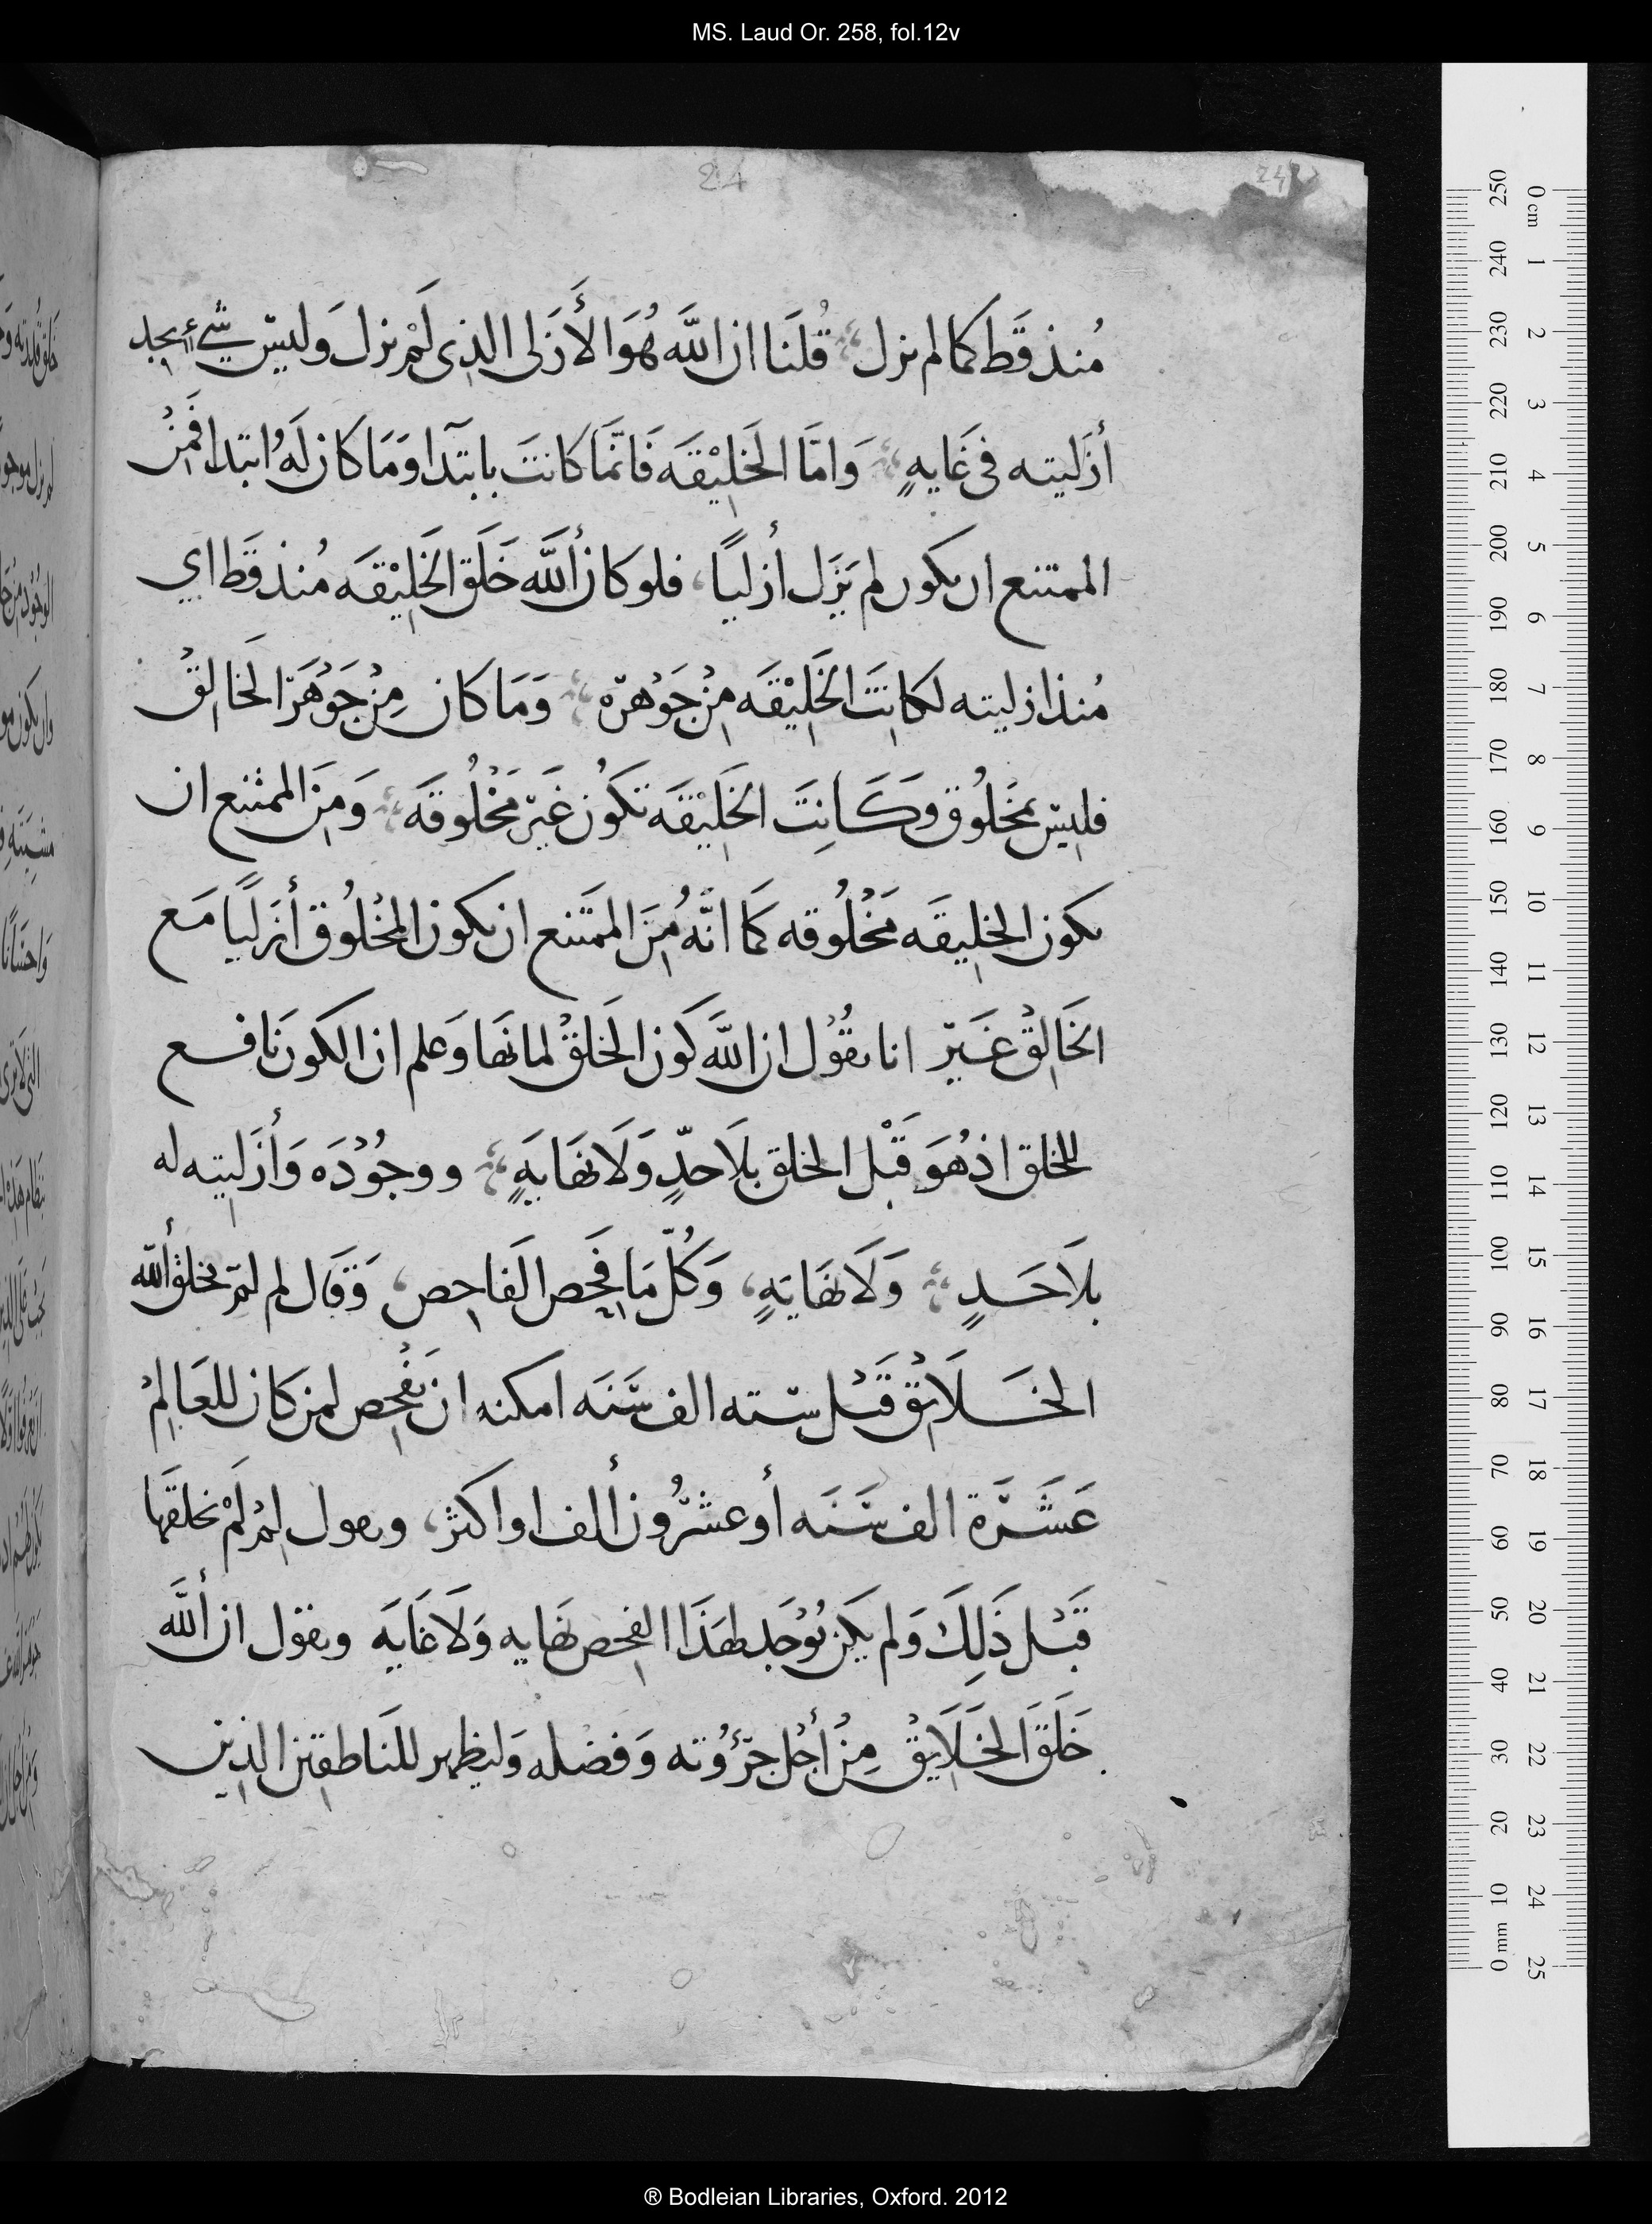 MS. Laud Or. 258, fol.12v
24
24
مُنذ قَط كما لم نزل قُلَنا ان اللَّه هُوَ الأَزَلى الذِى لَمْ نزل وَليسَ شيء يحد
أزَليته فى غَايهٍ وَامّا الخَلِيْقَه فَانّمَا كانتَ بابتَدا وَمَا كان لَهُ ابتدا فَمِنْ
الممتنع ان يكون لم يَزَل أزليًا فلو كان أللَّه خَلَق الخَلِيْقَه مُنذ قَط اي
مُنذ ازليته لكَانتَ الخَلِيْقَه مِنْ جَوْهرَه وَمَا كان مِنْ جَوْهَر الخَالِقْ
فليسَ بمخلُوق وَكَانِتَ الخَلِيْقَه تكُون غَيرَ مَخْلُوقَه وَمِنَ الممتنع ان
تكون الخلِيقَه مَخْلُوقه كمَا انّهُ مِنَ الممَتنع ان يكون المخْلُوق أزَليًا مَع
الخَالِقْ غَيرَ انا نقُوْل ان اللَّه كَون الخَلقْ لما نهَا وَعلم ان الكون نَافع
للخلق اذ هُوَ قَبْل الخلق بلَا حدٍّ وَلَا نهَايَهٍ ووجُوْدَه وَأزَليته له
بلَا حَدٍ وَلَا نهَايَهٍ وَكُلّمَا فَحِص الفَاحِص وَقَال لم لمَ يخلقْ أللَّه
الخَلَايِقْ قَبْل سته الف سَنَه امكنه ان يَفْحِص لمن كان للعَالِمْ
عَشَرَة الف سَنَه أو عشرُون ألف او اكثرَ ويقول لِمْ لَمْ يخلقَها
قَبْل ذَلِكَ وَلم يَكن يُوْجَد لهَذَا الفِحص نهَايه وَلَا غَايَه ويقول ان أللَّه
خَلَقَ الخَلَايِقْ مِنْ أجْل جَرؤُوته وَفضْله وَليظهر للنَاطِقين الذِين
0 cm 1 2 3 4 5 6 7 8 9 10 11 12 13 14 15 16 17 18 19 20 21 22 23 24 25
250 240 230 220 210 200 190 180 170 160 150 140 130 120 110 100 90 80 70 60 50 40 30 20 10 0 mm
® Bodleian Libraries, Oxford. 2012